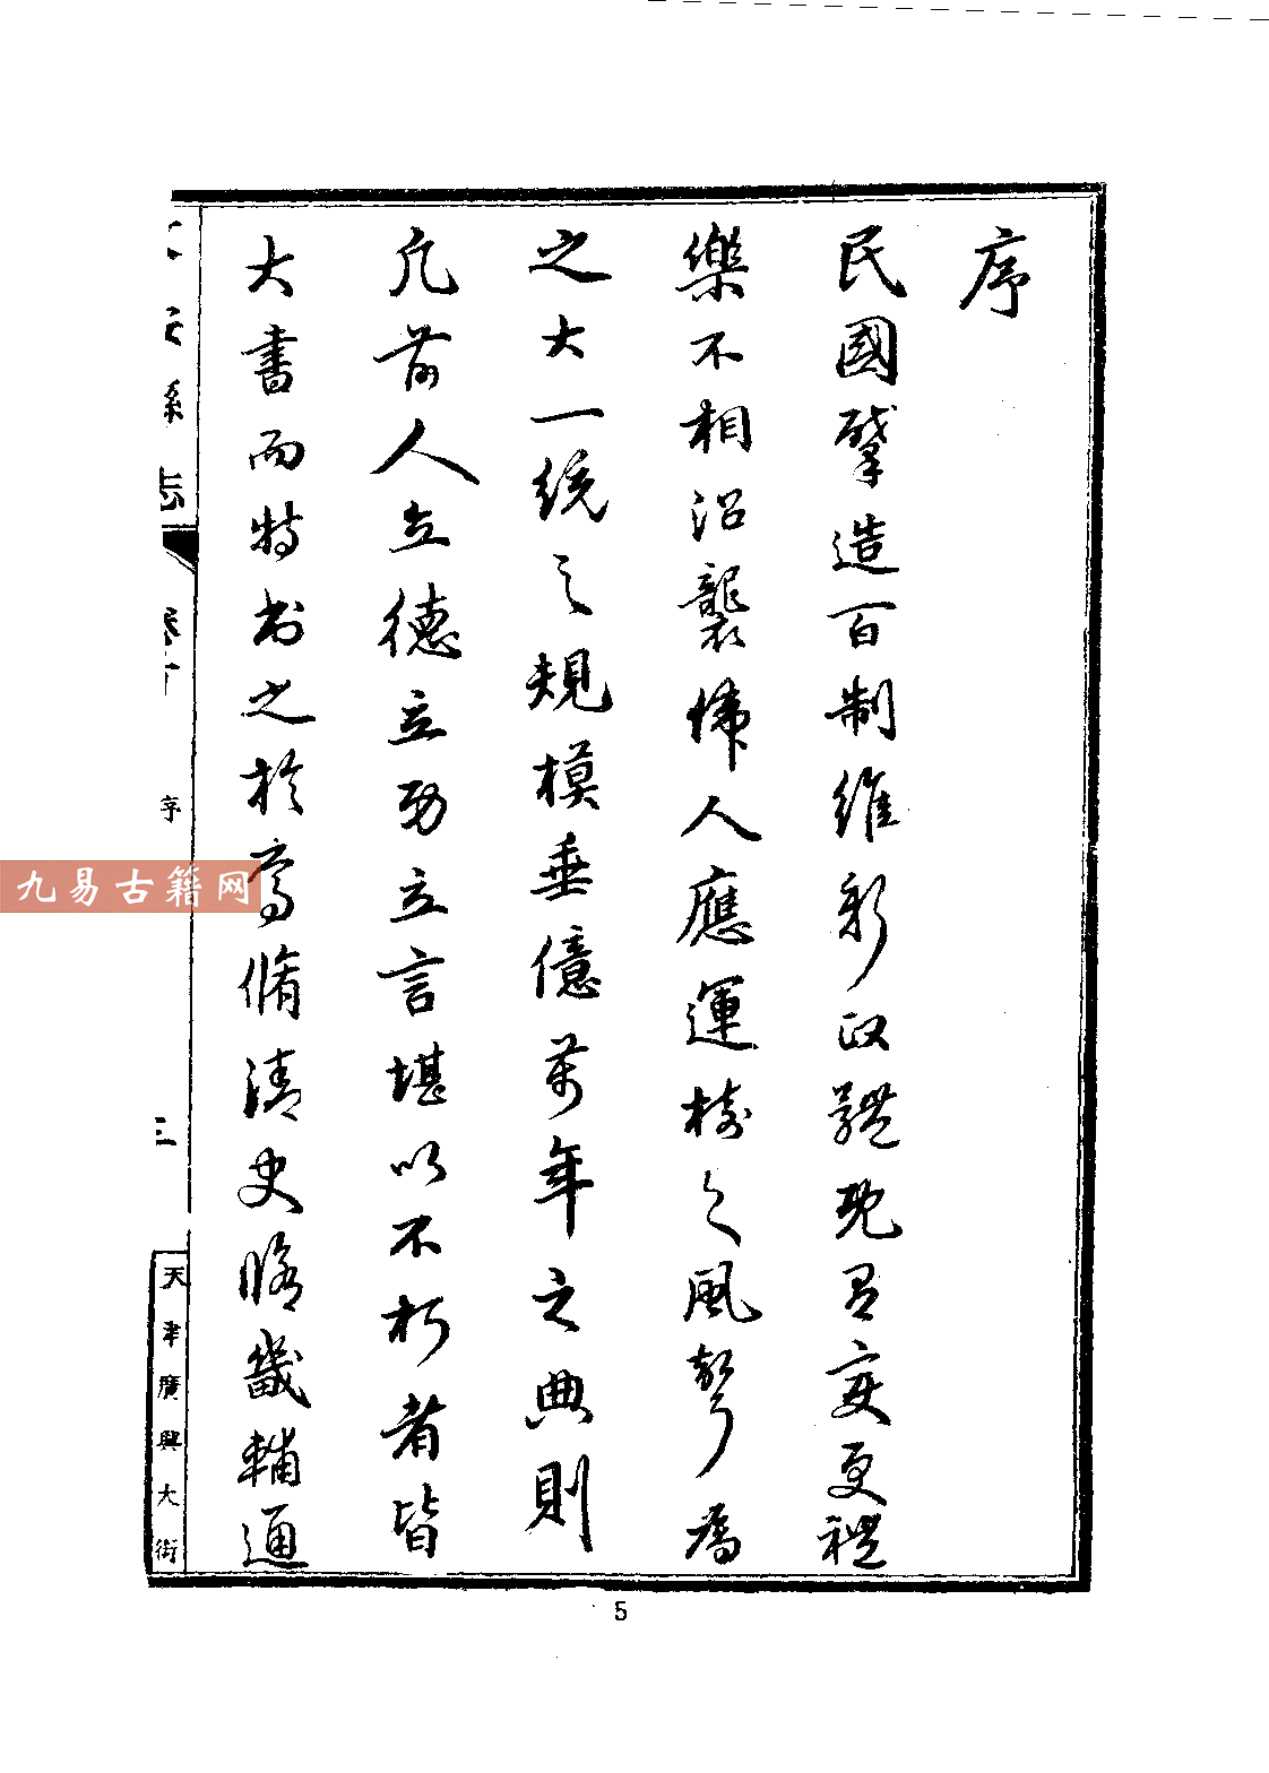 序
民國肇造百制維新政體既異変更禮
樂不相沿襲偉人應運樹之風聲為
之大一統之規模垂億萬年之典則
凡前人立德立功立言堪以不朽者皆
大書而特書之於焉脩清史瞻畿輔通
安縣志
序
三
天津廣興大街
九易古籍网
5